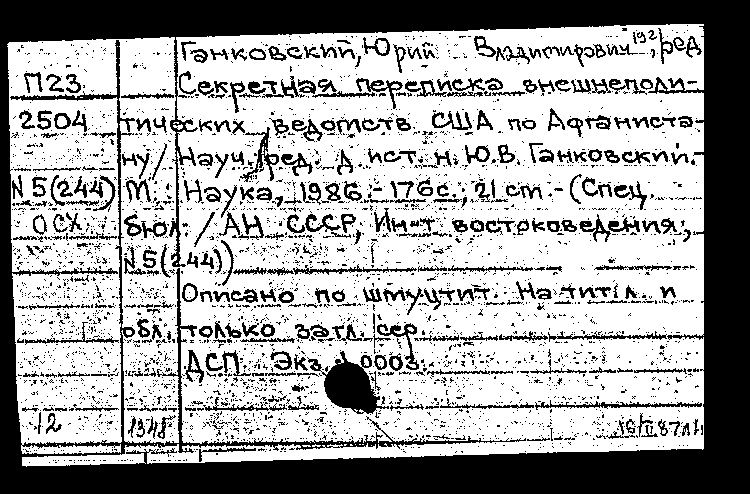 Ганковский, Юрий Владимирович, ред
П23 Секретная переписка внешнеполи-
2504 тических ведомств США по Афганиста-
ну / Науч. ред. д. ист. н. Ю.В. Ганковский.-
N 5(244) М.: Наука, 1986.- 176с.; 21 cm.- (Спец.
ОСХ бюл. / АН СССР, Ин-т востоковедения;
N 5(244))
Описано по шмуцтит. На тит. л. и
обл. только загл. сер.
ДСП Экз. 0003.
12 1948